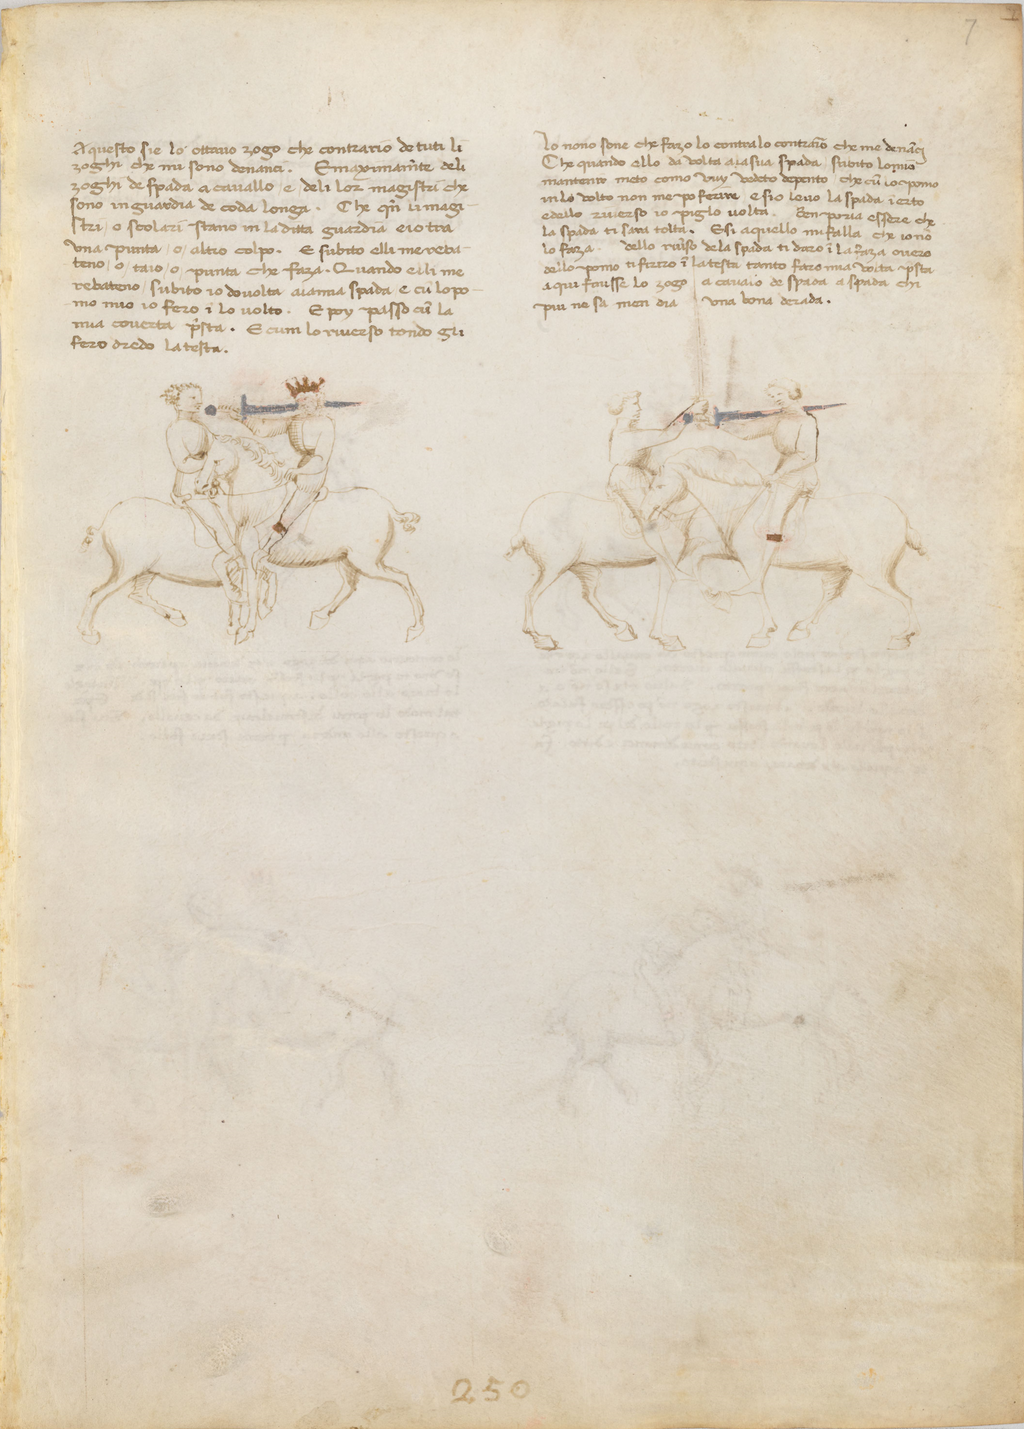 7
Aquesto sie lo ottavo zogo che contrario de tuti li
zoghi che mi sono denanci. E maximam̄te deli
zoghi de spada a cavallo e deli lor magistri che
sono in guardia de coda longa. Che qn̄ li magi-
stri / o scolari stano in la ditta guardia e io tra
una punta / o / altro colpo. E subito elli me reba-
teno / o / taio / o punta che faza. Quando elli me
rebateno / subito io do volta ala mia spada e cū lo po-
mo mio io fero ī lo volto. E poy passo cū la
mia coverta p̄sta. E cum lo riverso tondo gli
fero dredo la testa.
Lo nono sone che fazo lo contra lo contrario che me denāci
Che quando ello da volta a la sua spada subito lo mio
mantenir meto como vuy vedeto depento che cū io pomo
in lo volto non me po ferire e s'io levo la spada ī erto
e dello riverso io piglo volta. Ben poria essere che
la spada ti sara tolta. E si aquello mi falla che io nō
lo faza. dello riv̄so de la spada ti daro ī la faza overo
dello pomo ti feriro ī la testa tanto faro mia volta p̄sta
aqui fenisse lo zogo a cavalo de spada a spada chi
piu ne sa men dia una bona derada.
250